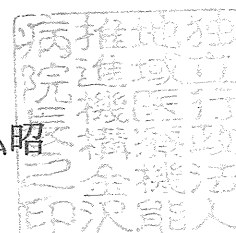 独立行政法人
地域医療機能
推進機構金沢
病院長之印
昭